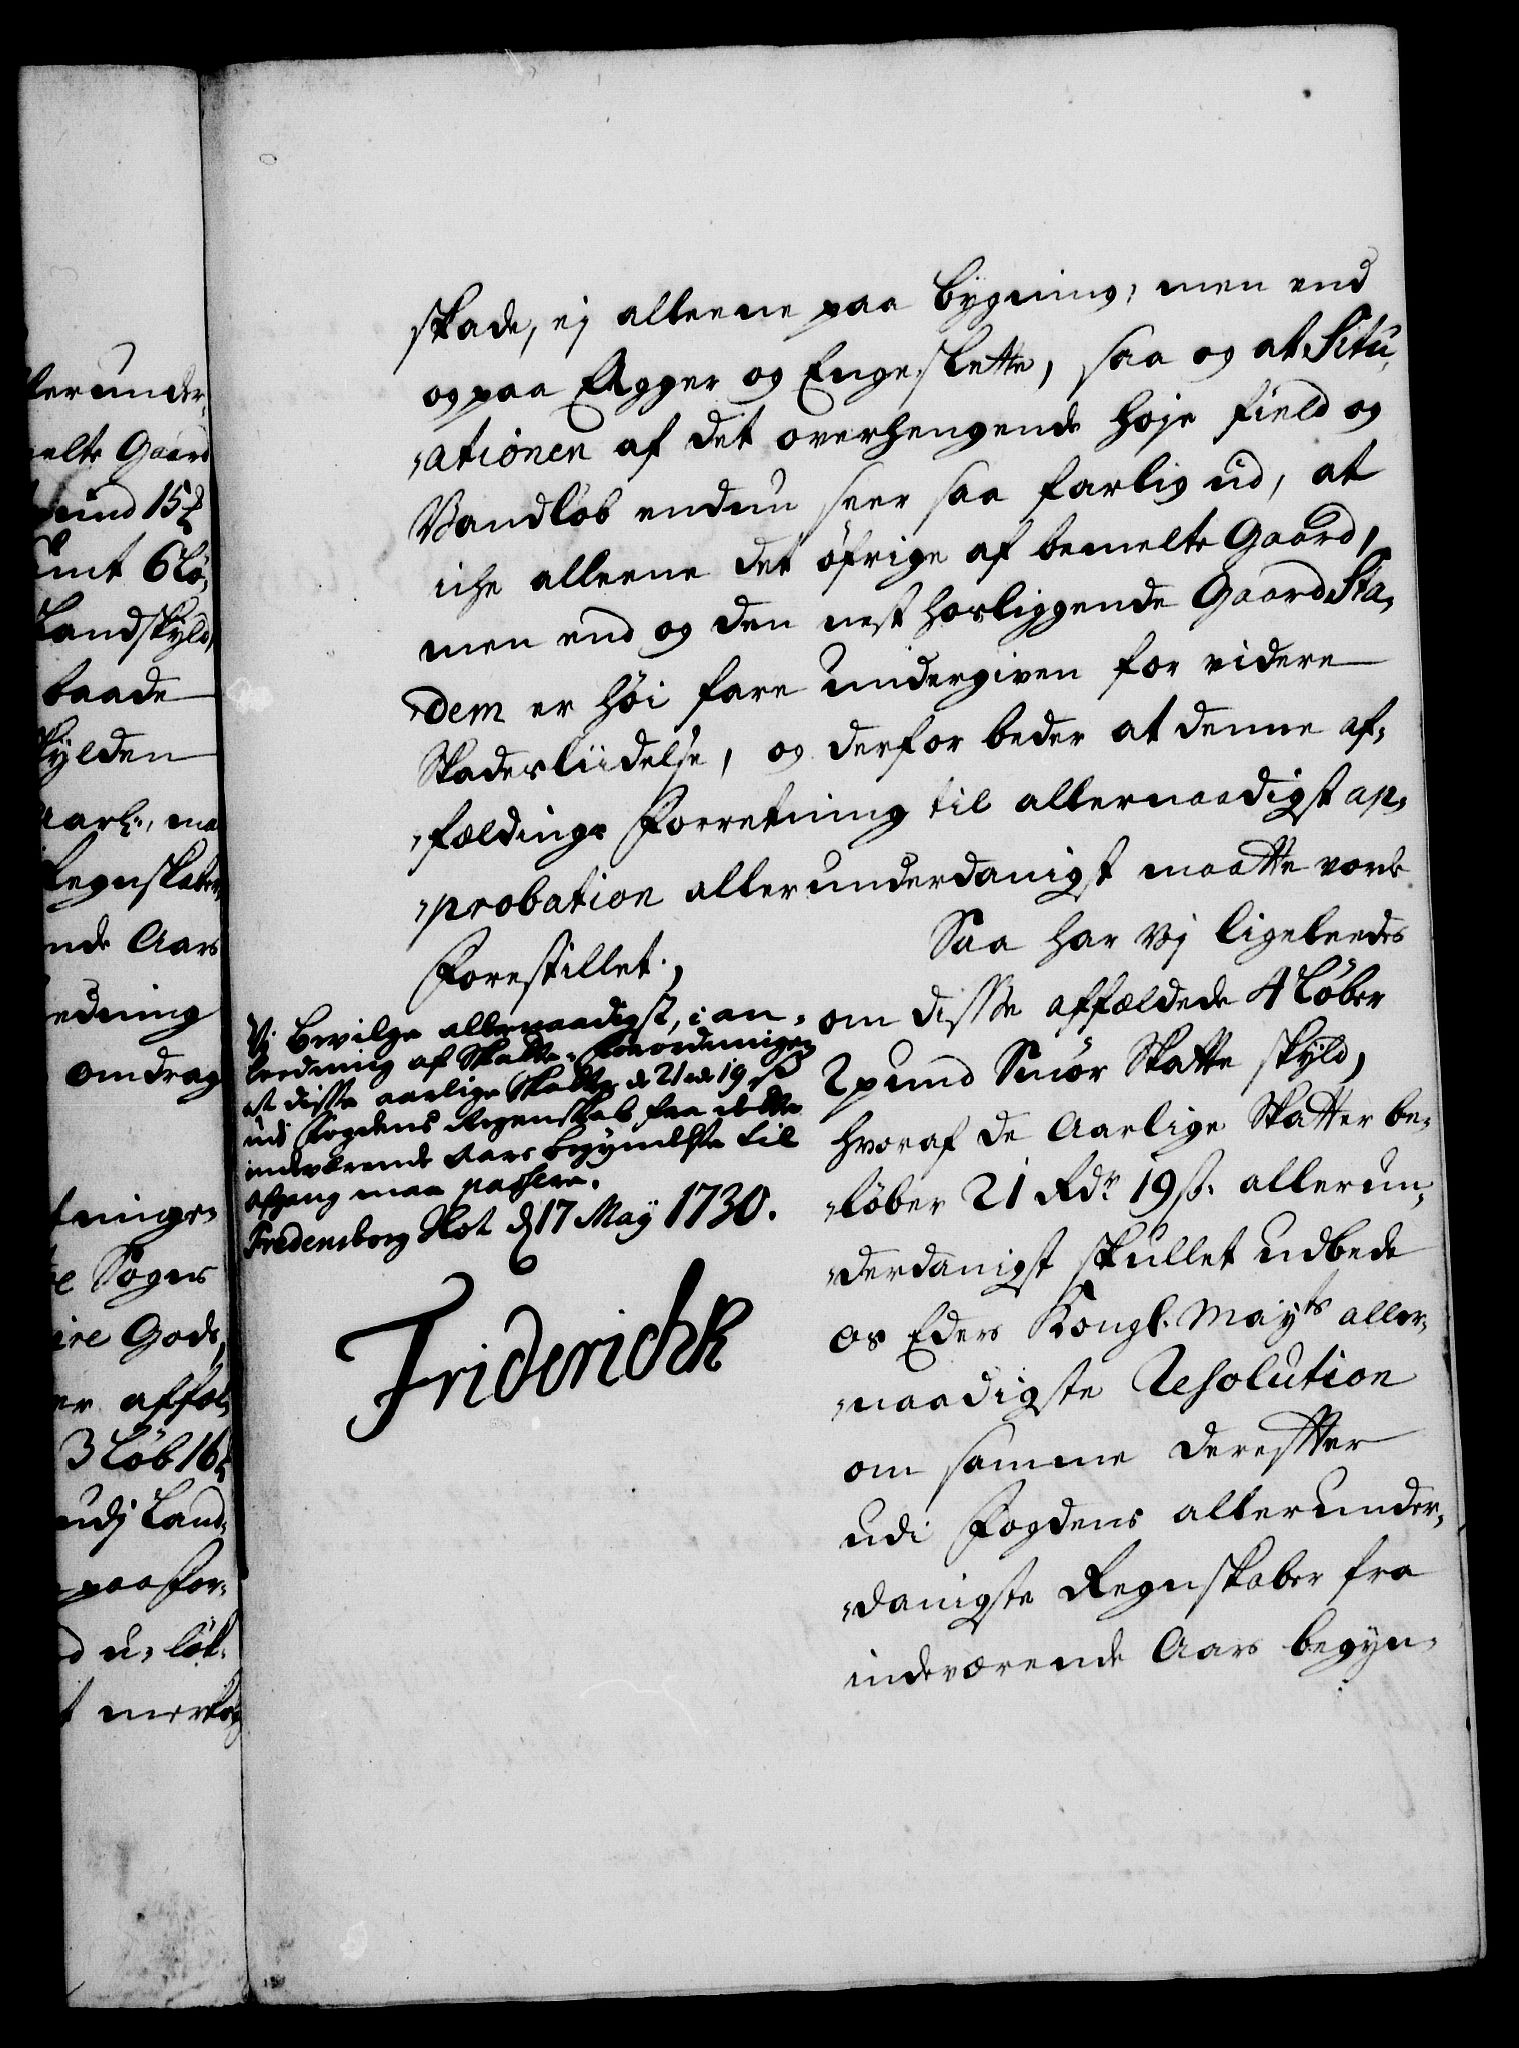 skade, ej alleene paa bygning, men end
og paa Agger og Enge-slette, saa og at Situ„
„ationen af det overhengende høje field og
Vandløb endnu seer saa farlig ud, at
iche alleene det øfrige af bemelte Gaard,
men end og den nest hosliggende Gaard Sta„
„dem er høi fare undergiven for videre
Skadesliidelse, og derfor beder at denne af„
„fældings Forretning til allernaadigst ap„
„probation allerunderdanigst maatte vorde
Forestillet.
Saa har vj ligeleedes
om disse affældede 4 Løber
2 pund Smør Skatte skyld,
hvoraf de Aarlige Skatter be„
„løber 21 Rdr 19 ß. allerun„
„derdanigst skullet udbede
os Eders Kongl. Mayts aller„
„naadigste Resolution
om samme derefter
udi Fogdens allerunder„
„danigste Regnskaber fra
indeværende Aars begyn„
Vi bevilge allernaadigst, i an„
ledning af Skatte-forordningen
at disse aarlige Skatter de 21 rdr 19 ß
udi fogdens Regenskab fra dette
indeværende Aars begyndelse til
afgang maa passere.
Fredensborg Slot d 17 May 1730.
Friderich R
lerunder„
melte Gaard
pund 15
6 Lø„
Landskyld,
baade
skylden
aarl., ma
Regnskaber
nde Aars
edning
omdrag
tninge„
Sogns
Gods,
er affæl„
3 Løb 16
udj Land„
paa for„
d u„ løb„